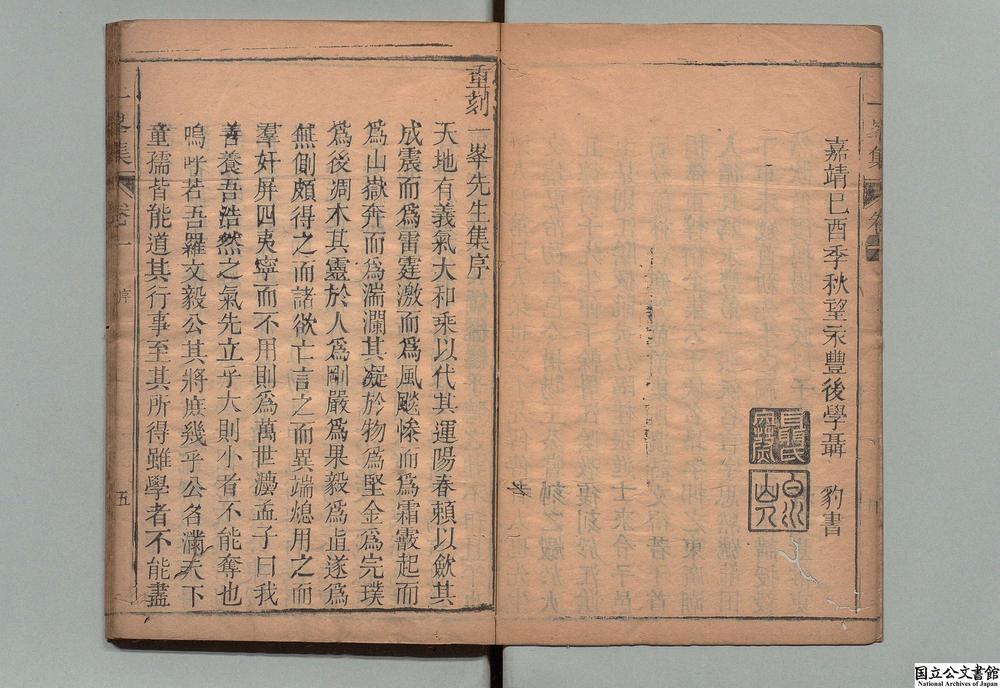 嘉靖已酉季秋望永豐後學聶　豹書
重刻一峯先生集序
天地有義氣大和乘以代其運陽春賴以歛其
成震而爲雷霆激而爲風飈慘而爲霜霰起而
爲山嶽奔而爲湍瀾其凝於物爲堅金爲完璞
爲後凋木其靈於人爲剛嚴爲果毅爲直遂爲
無側頗得之而諸欲亡言之而異端熄用之而
羣奸屏四夷寧而不用則爲萬世灋孟子曰我
善養吾浩然之氣先立乎大則小者不能奪也
嗚呼若吾羅文毅公其將庶幾乎公名滿天下
童孺皆能道其行事至其所得雖學者不能盡
一峯集
卷一
五
国立公文書館
National Archives of Japan